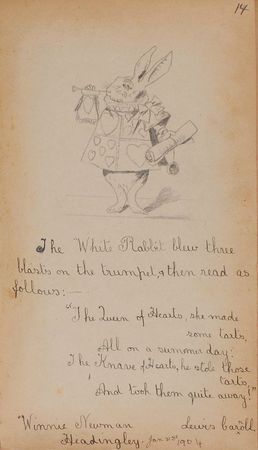 14
The White Rabbit blew three
blasts on the trumpet, & then read as
follows:—
"The Queen of Hearts, she made
some tarts,
All on a summer day:
The Knave of Hearts, he stole those
tarts,
And took them quite away!"
Winnie Newman Lewis Caroll,
Headingley. Jan 21st 1904